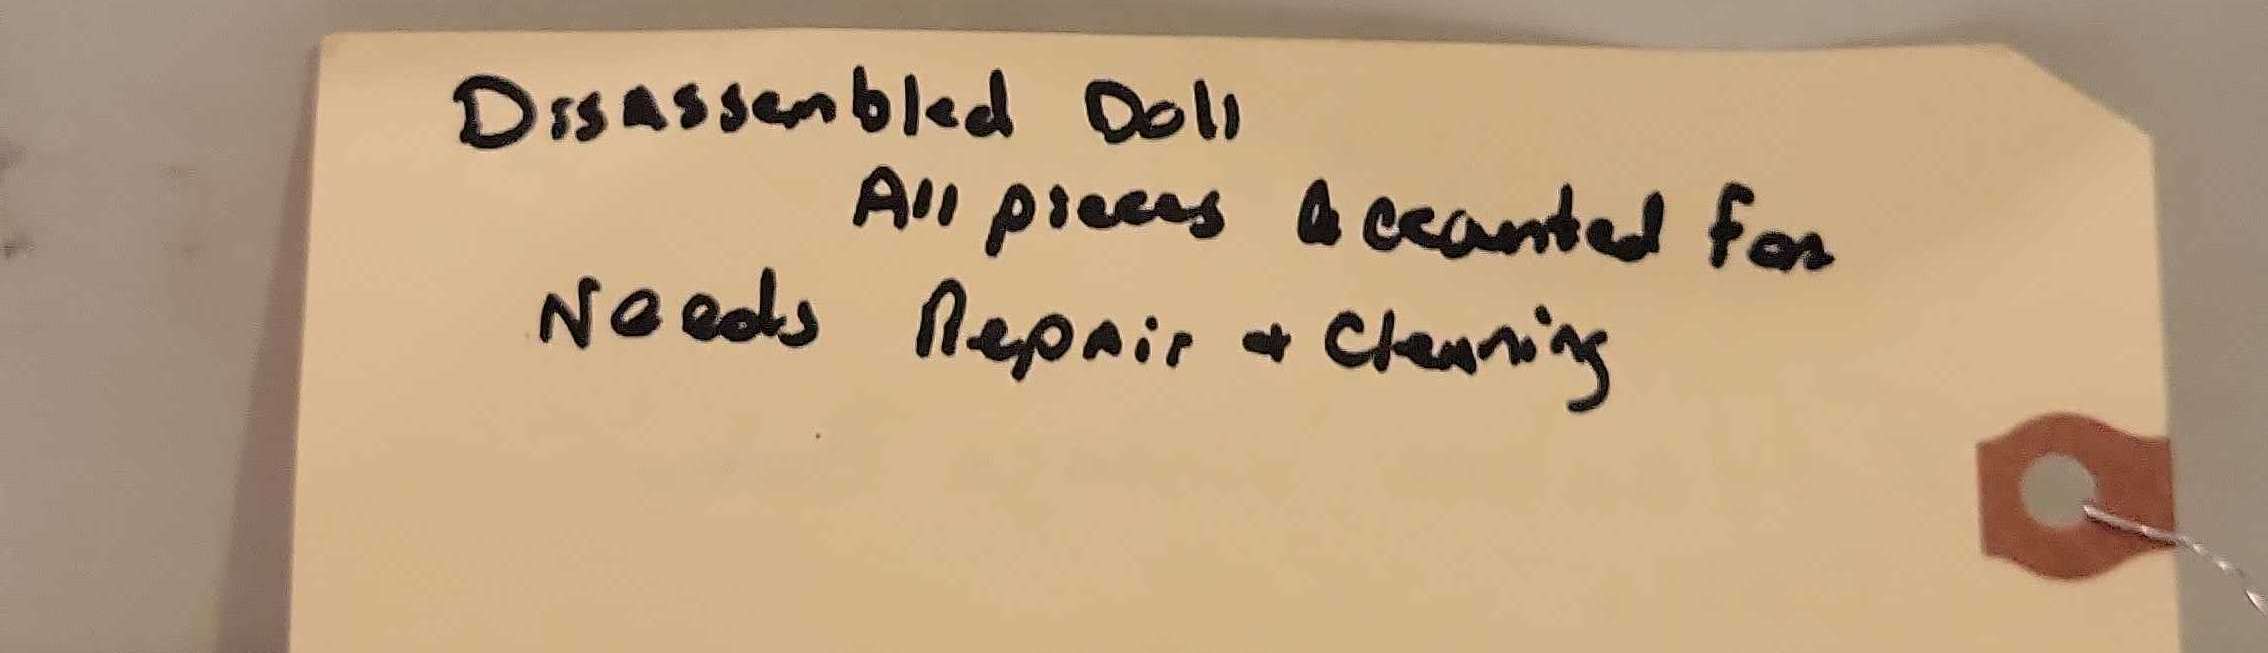 Disassembled Doll
All pieces Accounted for
Needs Repair & Cleaning